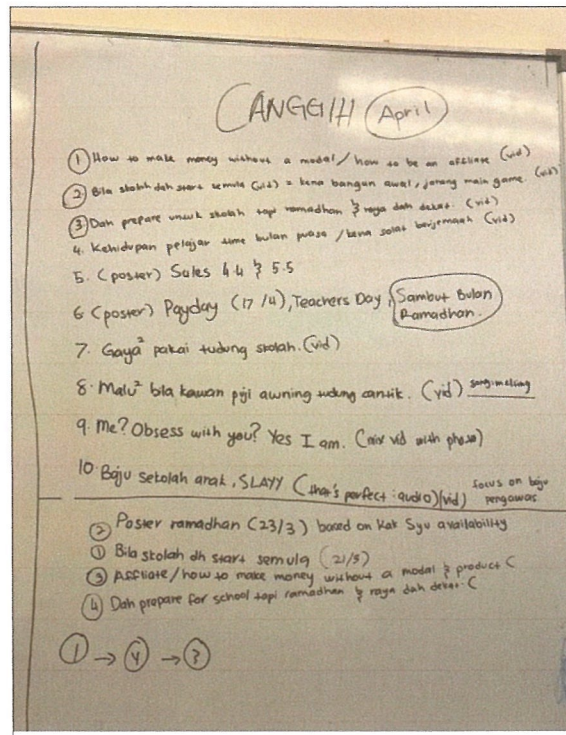 CANGGIH April
① How to make money without a modal / how to be an affliate (vid)
② Bila skolah dah start semula (vid) = kena bangun awal, jarang main game. (vid)
③ Dah prepare untuk skolah tapi ramadhan & raya dah dekat. (vid)
4. Kehidupan pelajar time bulan puasa / kena solat berjemaah (vid)
5. (poster) Sales 4.4 & 5.5
6. (poster) Payday (17/4), Teachers Day, Sambut Bulan
Ramadhan.
7. Gaya² pakai tudung skolah. (vid)
8. Malu² bila kawan puji awning tudung cantik. (vid)
9. Me? Obsess with you? Yes I am. (mix vid with photo)
10. Baju sekolah anak, SLAYY (that's perfect : audio) (vid) focus on baju
pengawas
② Poster ramadhan (23/3) based on Kak Syu availability
① Bila skolah dh start semula (21/3)
③ Affliate / how to make money without a modal & product C
④ Dah prepare for school tapi ramadhan & raya dah dekat. C
① → ④ → ③